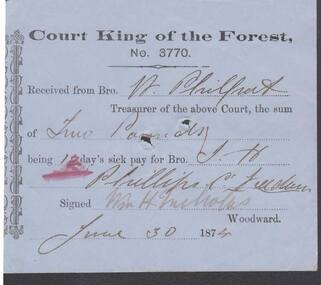 Court King of the Forest,
No. 3770.
Received from Bro. W. Philpot
Treasurer of the above Court, the sum
of Two Pounds
being day's sick pay for Bro. J. H
Phillips
Signed Wm H. Nicholas
Woodward.
June 30 1874